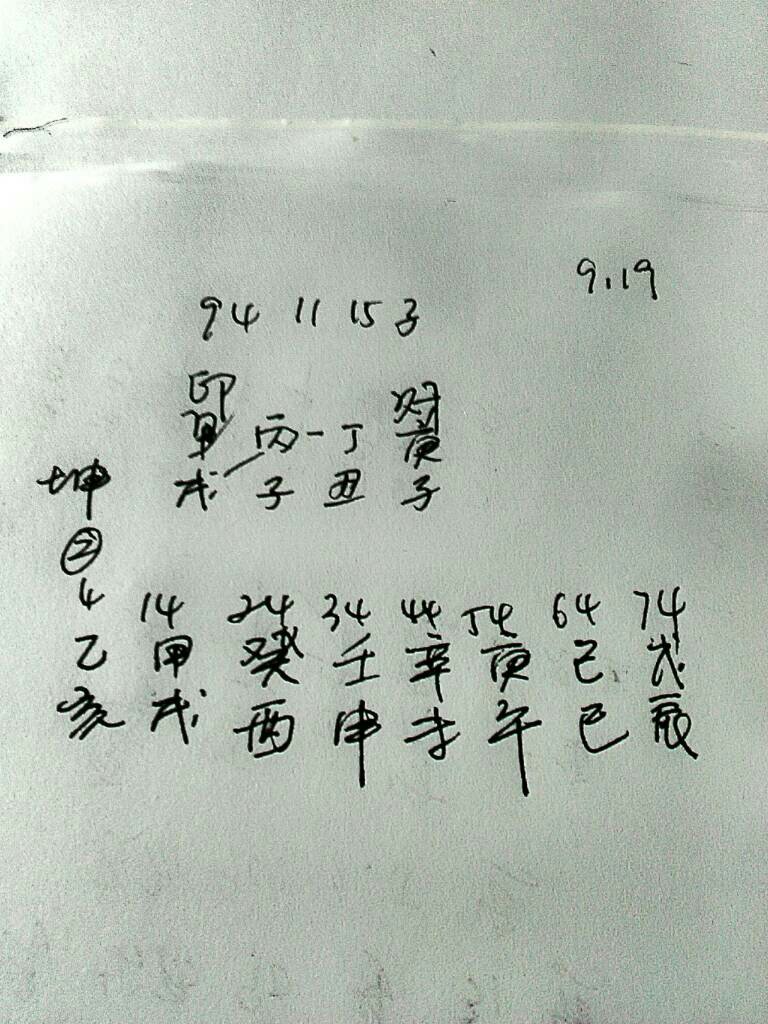 9.19
94 11 15 子
印 财
甲 丙 一 丁 庚
戌 子 丑 子
坤
②
4 14 24 34 44 54 64 74
乙 甲 癸 壬 辛 庚 己 戊
亥 戌 酉 申 未 午 巳 辰